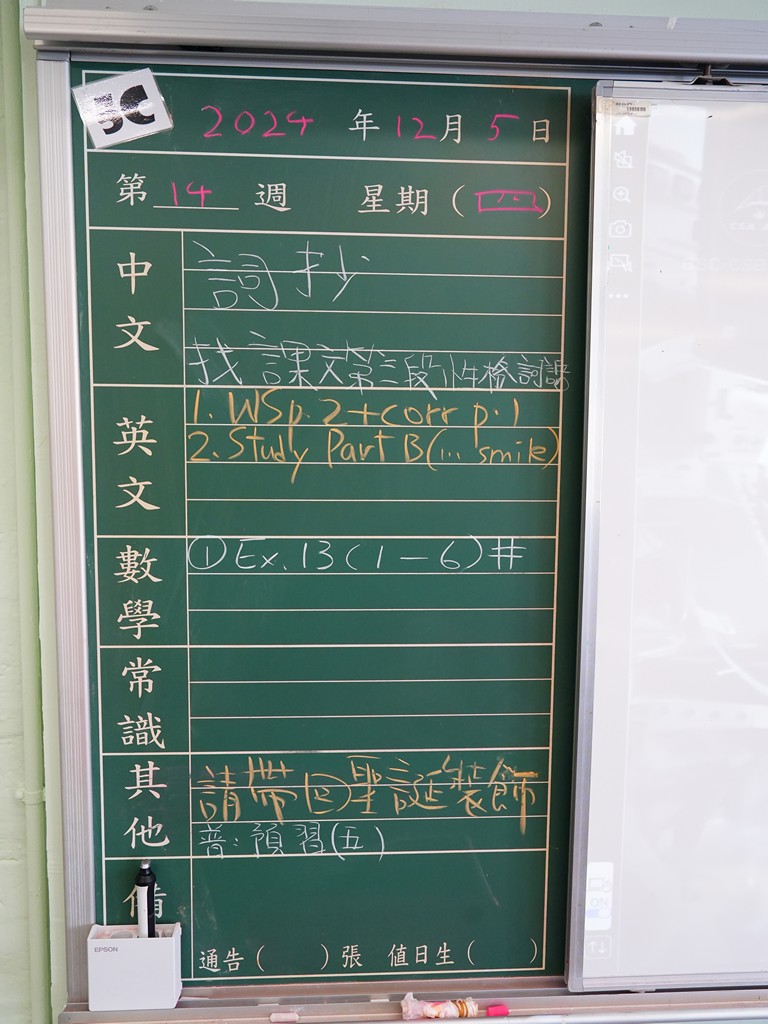 3C
2024 年 12 月 5 日
第 14 週 星期 (四)
中文
詞抄
找課文第三段性格詞語
英文
1. WS p. 2 + corr p. 1
2. Study Part B (... smile)
數學
① Ex. 13 (1 - 6) #
常識
其他
請帶回聖誕裝飾
普: 預習(五)
備
通告 ( ) 張 值日生 ( )
EPSON